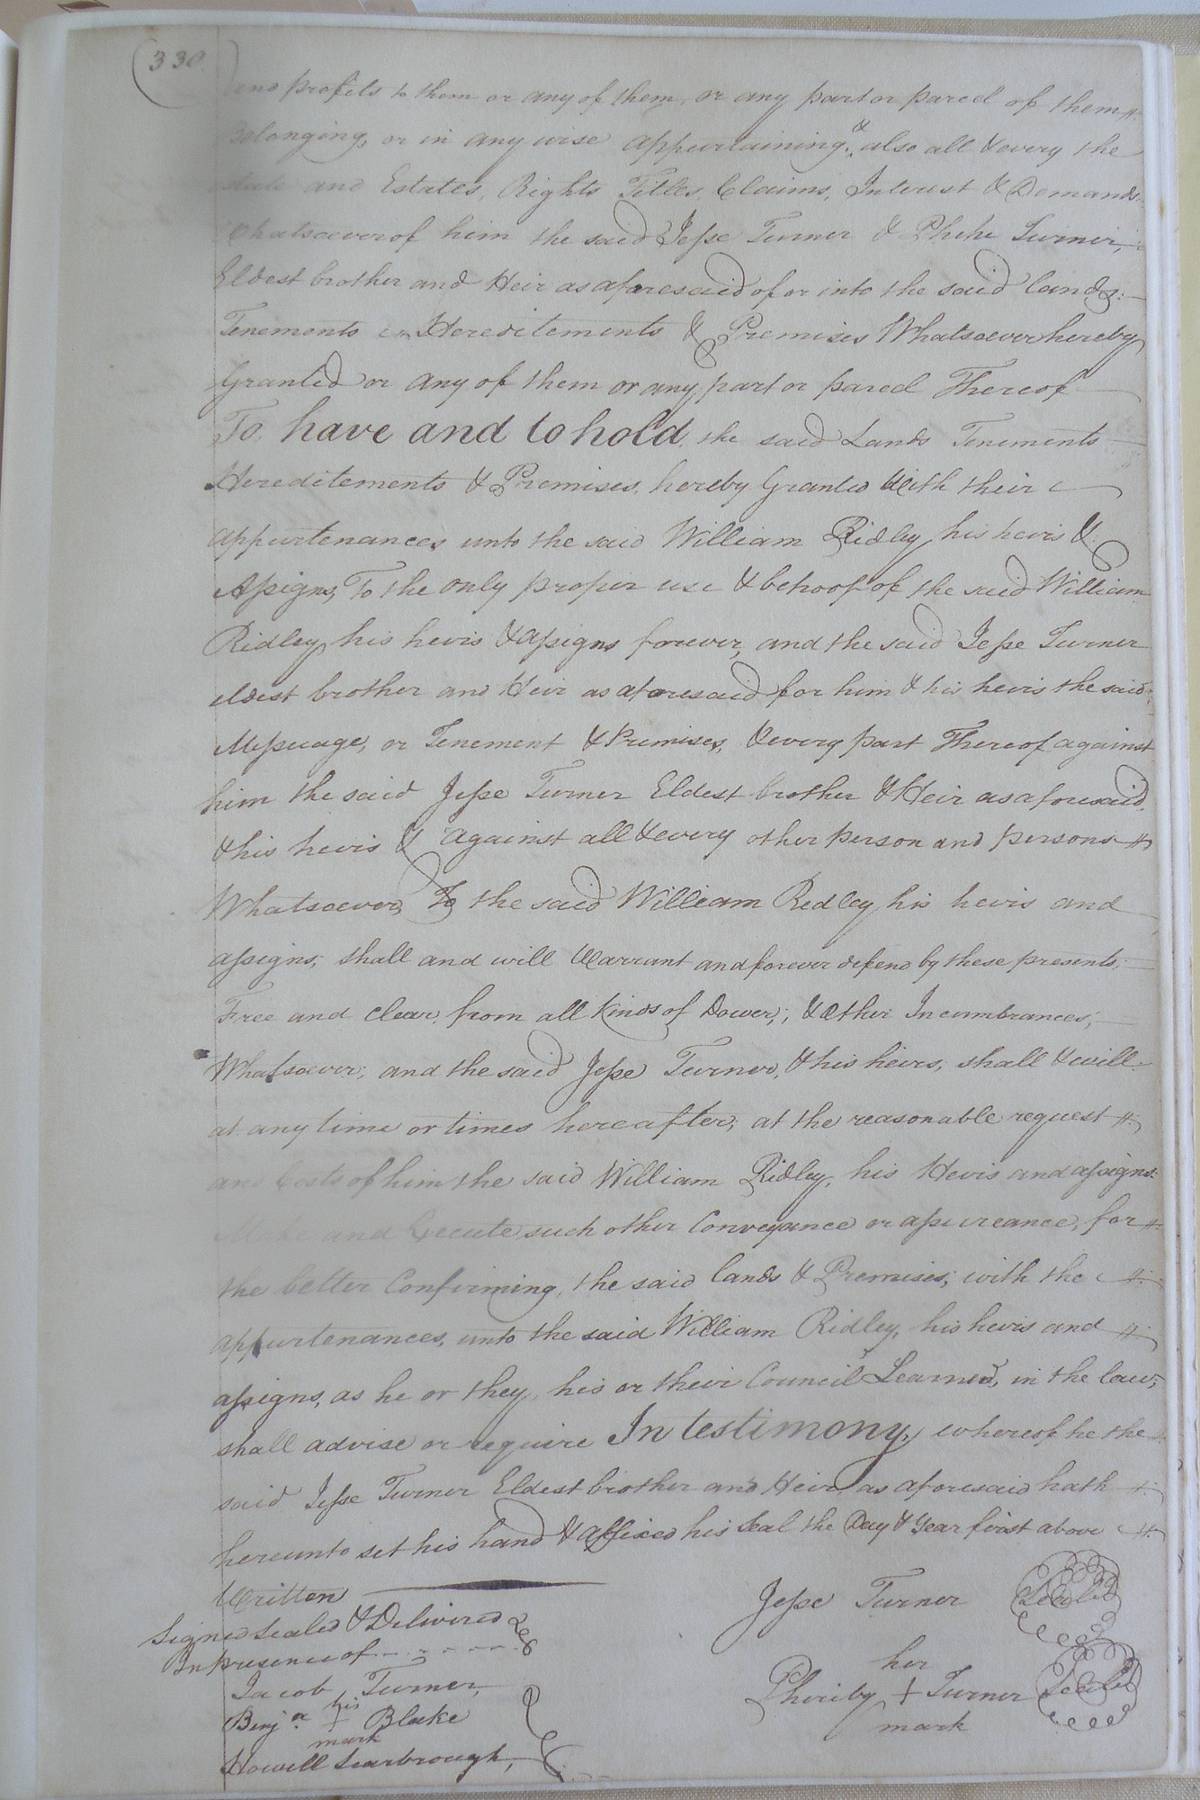 330
and profits to them or any of them, or any part or parcel of them
belonging, or in any wise appurtaining, & also all & every the
state and Estates, Rights Titles, Claims, Interest & Demands
Whatsoever of him the said Jesse Turner & Phebe Turner,
Eldest brother and Heir as aforesaid of or into the said lands:
Tenements Hereditements & Premises Whatsoever hereby
Granted or any of them or any part or parcel Thereof
To have and to hold, the said Lands Tenements
Hereditements & Premises, hereby Granted With their
appurtenances unto the said William Ridley his hevis &
Assigns, To the only proper use & behoof of the said William
Ridley his hevis & assigns forever, and the said Jesse Turner
eldest brother and Heir as aforesaid for him & his hevis the said
Messuage, or Tenement & Premises, & every part Thereof against
him the said Jesse Turner Eldest brother & Heir as aforesaid
& his hevis & against all & every other person and persons
Whatsoever, To the said William Redley his hevis and
assigns, shall and will Warrant and forever defend by these presents,
Free and clear, from all kinds of Dower; & Other Incumbrances,
Whatsoever; and the said Jesse Turner, & his heirs, shall & will
at any time or times hereafter, at the reasonable request
and Costs of him the said William Ridley, his Hevis and assigns
Make and Execute such other Conveyance or assureance, for
the better Confirming, the said lands & Premises; with the
appurtenances, unto the said William Ridley, his hevis and
assigns, as he or they, his or their Council Learned, in the law;
shall advise or require In testimony, whereof he the
said Jesse Turner Eldest brother and Heir as aforesaid hath
hereunto set his hand & affixed his Seal the Day & Year first above
Written
Signed Sealed & Delivered
In presence of
Jacob Turner,
his
Benj.a + Blake
mark
Howell Scarbrough,
Jesse Turner Seald
her
Pheriby + Turner Seald
mark